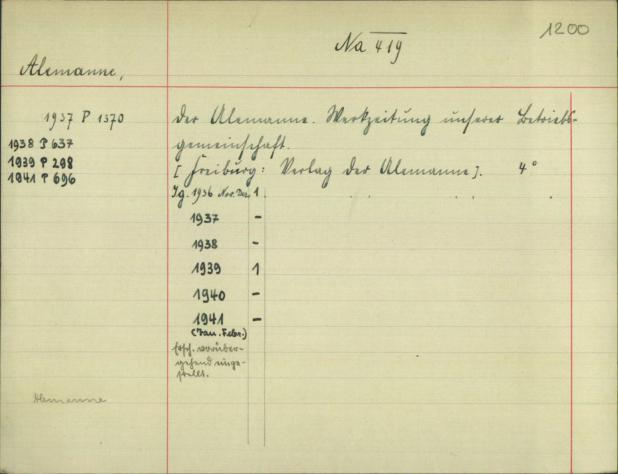 1200
Na 419
Alemanne,
1937 P 1370
1938 P 637
1939 P 298
1941 P 696
Der Alemanne. Werkzeitung unserer Betriebs-
gemeinschaft.
[Freiburg: Verlag der Alemanne]. 4°
Jg. 1936 Nov. Dez. 1
1937 -
1938 -
1939 1
1940 -
1941 -
(Jan. Febr.)
Ersch. vorüber-
gehend einge-
stellt.
Alemanne